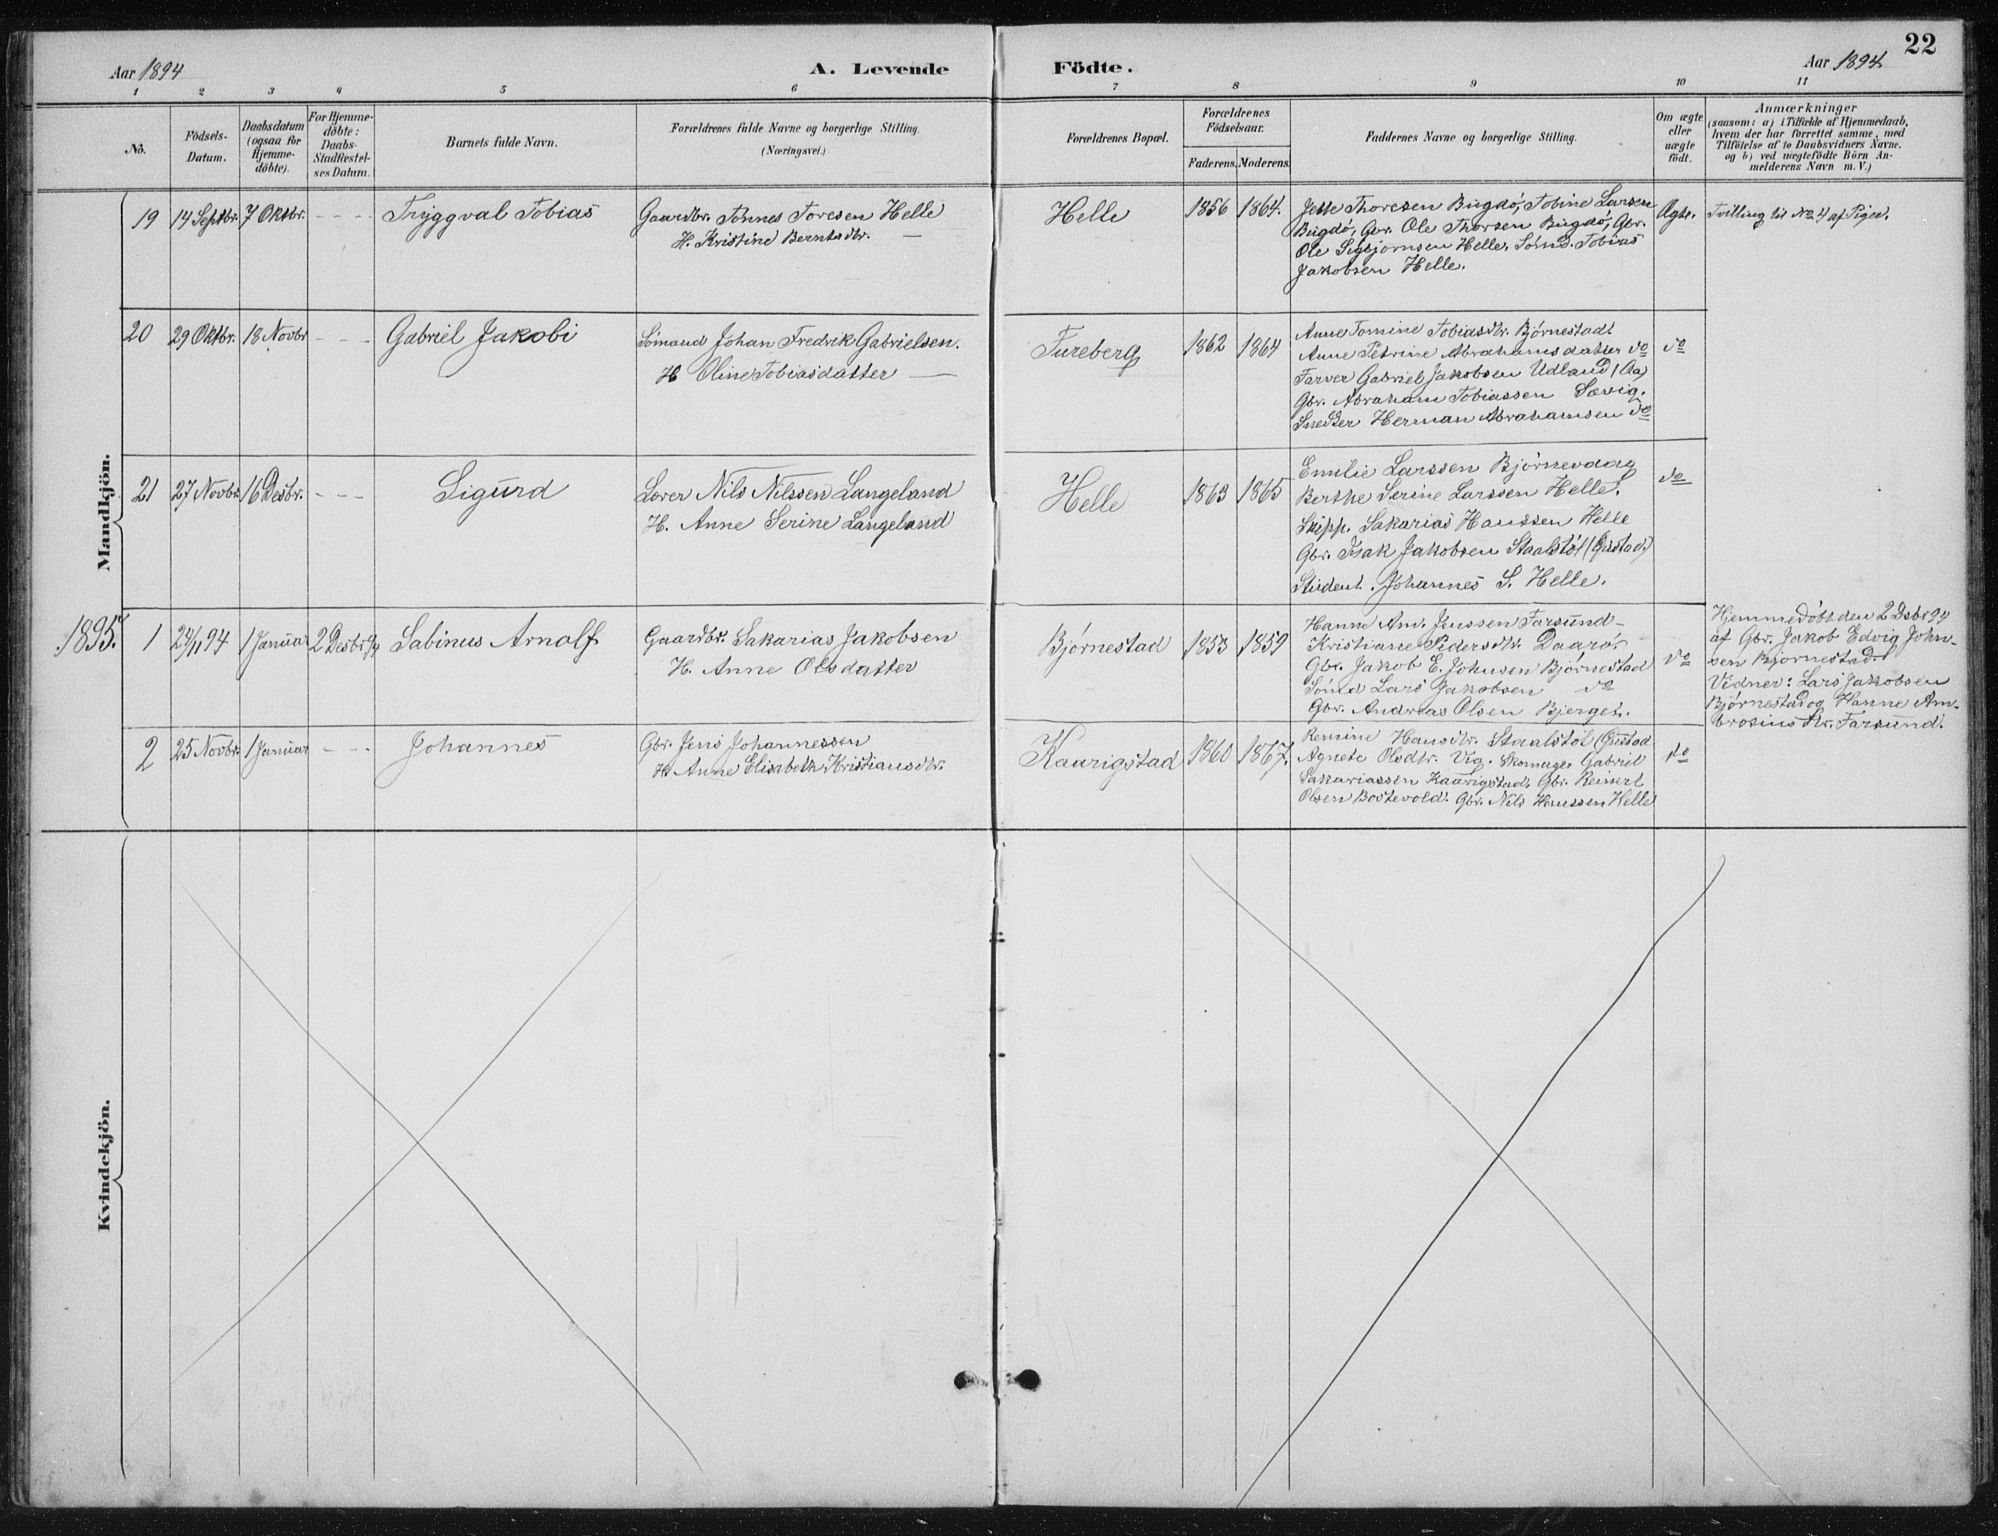 22
Aar 1894 A. Levende Födte. Aar 1894
1 2 3 4 5 6 7 8 9 10 11
No.
Födsels-
Datum.
Daabsdatum
(ogsaa for
Hjemme-
döbte).
For Hjemme-
döbte:
Daabs-
Stadfæstel-
ses Datum.
Barnets fulde Navn.
Forældrenes fulde Navne og borgerlige Stilling.
(Næringsvei.)
Forældrenes Bopæl.
Forældrenes
Födselsaar.
Faderens. Moderens.
Faddernes Navne og borgerlige Stilling.
Om ægte
eller
uægte
født.
Anmærkninger
(saasom: a) i Tilfælde af Hjemmedaab,
hvem der har forrettet samme, med
Tilföielse af to Daabsvidners Navne.
og b) ved uægtefödte Börn An-
melderens Navn m. V.)
Mandkjön.
19 14 Septbr. 7 Oktbr. - - - Tryggval Tobias
Gaardbr. Tønnes Toresen Helle
H. Kristine Berntsdtr. —
Helle 1856 1864.
Jesse Thoresen Bugdö, Tobine Larsen
Bugdö, Gbr. Ole Thorsen Bugdö, Gbr.
Ole Sigbjørnsen Helle, Sömd. Tobias
Jakobsen Helle.
Ægte. Tvilling til No 4 af Piger.
20 29 Oktbr. 18 Novbr - - - Gabriel Jakobi
Sömand Johan Fredrik Gabrielsen.
H Oline Tobiasdatter —
Tureberg 1862 1864
Anne Tomine Tobiasdtr. Bjørnestad
Anne Petrine Abrahamsdatter do
Farver Gabriel Jakobsen Udland (Aa)
Gbr. Abraham Tobiassen Sævig.
Snedker Herman Abrahamsen do
do
21 27 Novbr. 16 Desbr. - - - Sigurd
Lærer Nils Nilssen Langeland
H. Anne Serine Langeland
Helle 1863 1865
Emilie Larssen Bjørnevaag
Berthe Serine Larssen Helle.
Skipp. Sakarias Hanssen Helle
Gbr. Isak Jakobsen Staalstöl (Gustad)
Student. Johannes S. Helle.
do
1895.
1 24/11 94 1 Januar 2 Desbr 94 Sabinus Arnolf
Gaardbr. Sakarias Jakobsen
H. Anne Olsdatter
Bjørnestad 1853 1859
Hanne Am. Jenssen Farsund -
Kristiane Pedersdtr. Daarö.
Gbr. Jakob E. Johnsen Bjørnestad
Sömd Lars Jakobsen do
Gbr. Andreas Olsen Bjerget.
do
Hjemmedöbt den 2 Desbr 94
af Gbr. Jakob Edvig John-
sen Bjørnestad.
Vidner: Lars Jakobsen
Bjørnestad og Hanne Am-
brosius dtr. Farsund.
2 25 Novbr. 1 Januar - - - Johannes
Gbr. Jens Johannessen
H Anne Elisabeth Kristiansdtr.
Kaarigstad 1860 1867.
Remine Hansdtr. Staalstöl (Gustad
Agnete Olsdtr. Vig. Skomager Gabriel
Sakariassen Kaarigstad. Gbr. Reinert
Olsen Bostevold. Gbr. Nils Hanssen Helle
do
Kvindekjön.